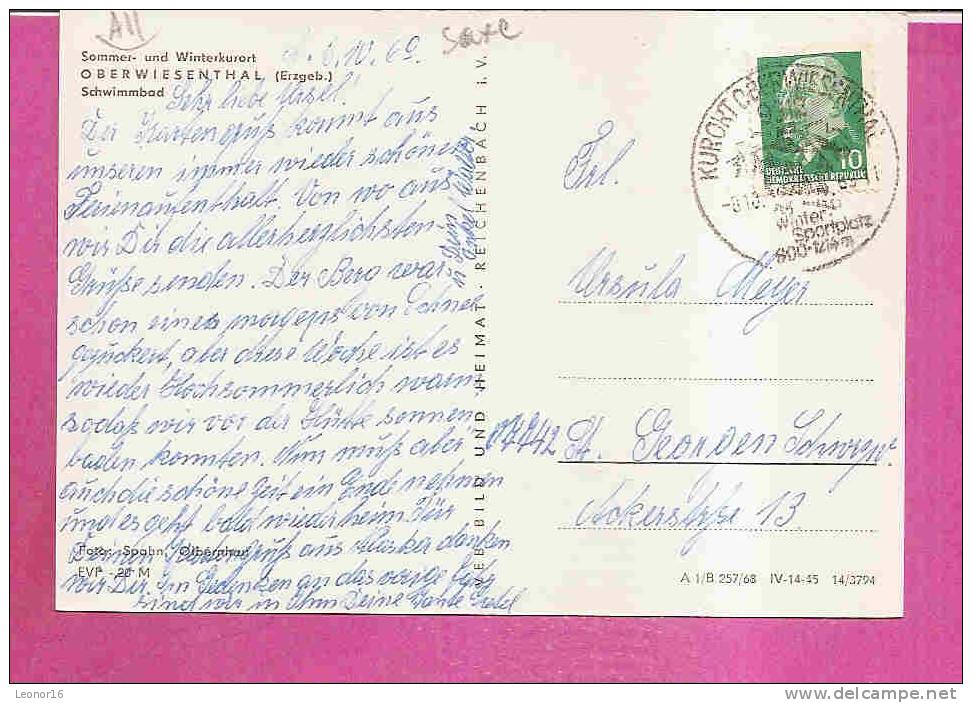 All
Saxe
Sommer- und Winterkurort
OBERWIESENTHAL (Erzgeb.)
Schwimmbad
6.10.69.
Sehr liebe Ursel!
Der Kartengruß kommt aus
unseren immer wieder schönen
Ferienaufenthalt. Von wo aus
wir Dir die allerherzlichsten
Grüße senden. Der Berg war
schon eines morgens von Schnee
gezuckert, aber diese Woche ist es
wieder Hochsommerlich warm
sodaß wir vor der Hütte sonnen
baden konnten. Nun muß aber
auch die schöne Zeit ein Ende nehmen
und es geht bald wieder heim. Für
Deinen Gruß aus danken
wir Dir. Im Gedenken an das vorige Jahr
sind wir in Deine Tante
u. Dein Onkel
Foto: Spahn, Olbernhau
EVP -,20 M
VEB BILD UND HEIMAT · REICHENBACH i. V.
KURORT OBERWIESENTHAL
Winter-
Sportplatz
900-1214 m
10
DEUTSCHE
DEMOKRATISCHE REPUBLIK
Frl.
Ursula Meyer
07742 St. Georgen Schwarzw.
Ackerstraße 13
A 1/B 257/68 IV-14-45 14/3794
Leonor16
delcampe.net